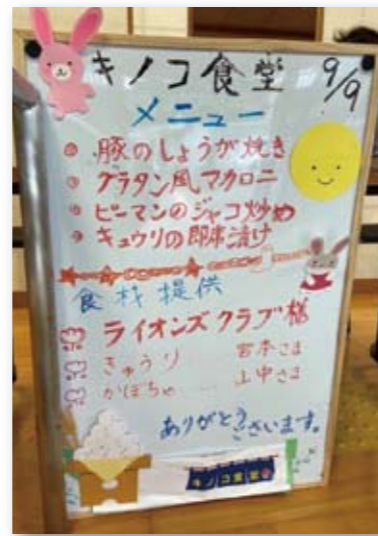 キノコ食堂 9/9
メニュー
豚のしょうが焼き
グラタン風マカロニ
ピーマンのジャコ炒め
キュウリの即席漬け
食材提供
ライオンズクラブ様
きゅうり 宮本さま
かぼちゃ 山中さま
ありがとう
ございます。
キノコ食堂